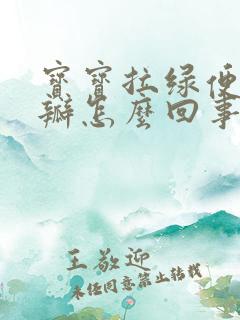 寶寶拉绿便
瓣怎麼回事
王敬迎
未经同意禁止转载